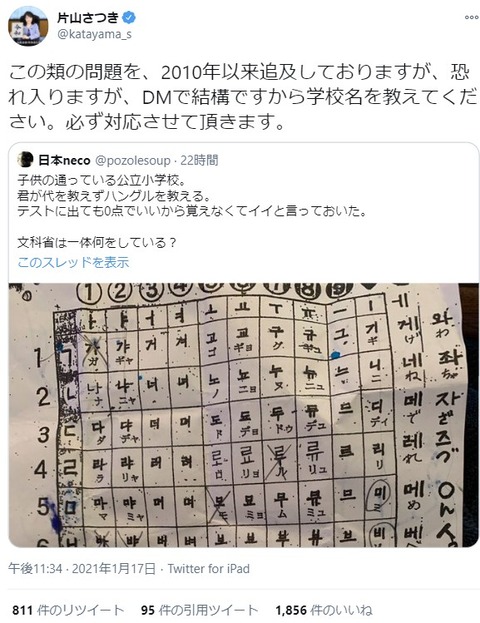 片山さつき
@katayama_s
この類の問題を、2010年以来追及しておりますが、恐
れ入りますが、DMで結構ですから学校名を教えてくだ
さい。必ず対応させて頂きます。
日本neco @pozolesoup · 22時間
子供の通っている公立小学校。
君が代を教えずハングルを教える。
テストに出ても0点でいいから覚えなくてイイと言っておいた。
文科省は一体何をしている？
このスレッドを表示
① ② ③ ④ ⑤ ⑥ ⑦ ⑧ ⑨
ㅏ ㅑ ㅓ ㅕ ㅗ ㅛ ㅜ ㅠ ㅡ ㅣ
1 ㄱ 갸 ギャ 거 겨 고 コ 교 ギョ 구 グ 규 ギュ 그 기 ギ 게 げ 와 わ
2 ㄴ ナ 냐 ニャ 너 녀 노 ノ 뇨 ニョ 누 ヌ 뉴 ニュ 느 니 ニ 네 ね 좌
3 다 ダ 댜 デャ 더 며 도 ド 됴 デョ 두 ドゥ 듀 デュ 디 ディ 자 ざ 즈 づ
4 ㄹ 라 ラ 랴 リャ 러 려 로 ロ 료 リョ 루 ル 류 リュ 르 리 リ 레 れ
5 ㅁ 마 マ 먀 ミャ 머 며 모 モ 묘 ミョ 무 ム 뮤 ミュ 므 미 ミ 메 め ん
6 ㅂ 바 뱌 버 벼 보 뵤 부 뷰 브 비 베
午後11:34 · 2021年1月17日 · Twitter for iPad
811 件のリツイート 95 件の引用ツイート 1,856 件のいいね